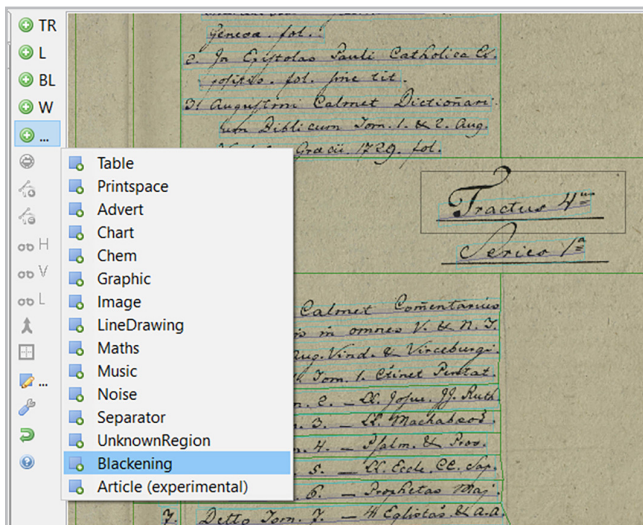 TR
L
BL
W
...
H
V
L
...
Table
Printspace
Advert
Chart
Chem
Graphic
Image
LineDrawing
Maths
Music
Noise
Separator
UnknownRegion
Blackening
Article (experimental)
Genevæ. fol.
2. In Epistolas Pauli Catholica
fol. sine tit.
3) Augustini Calmet Dictionari
um Biblicum Tom. 1. & 2. Aug.
Græcii. 1729. fol.
Tractus 4
Series 1a
Calmet Comentarius
in omnes V. & N. T.
Aug. Vind. & Wirceburgi
Tom. 1.
2. — Josue. Ruth
3. — Machabæos
4. — Psalm. & Prov.
5. — Eccle. Sap.
6. — Prophetas Maj.
7. Ditto Tom. 7. — 4